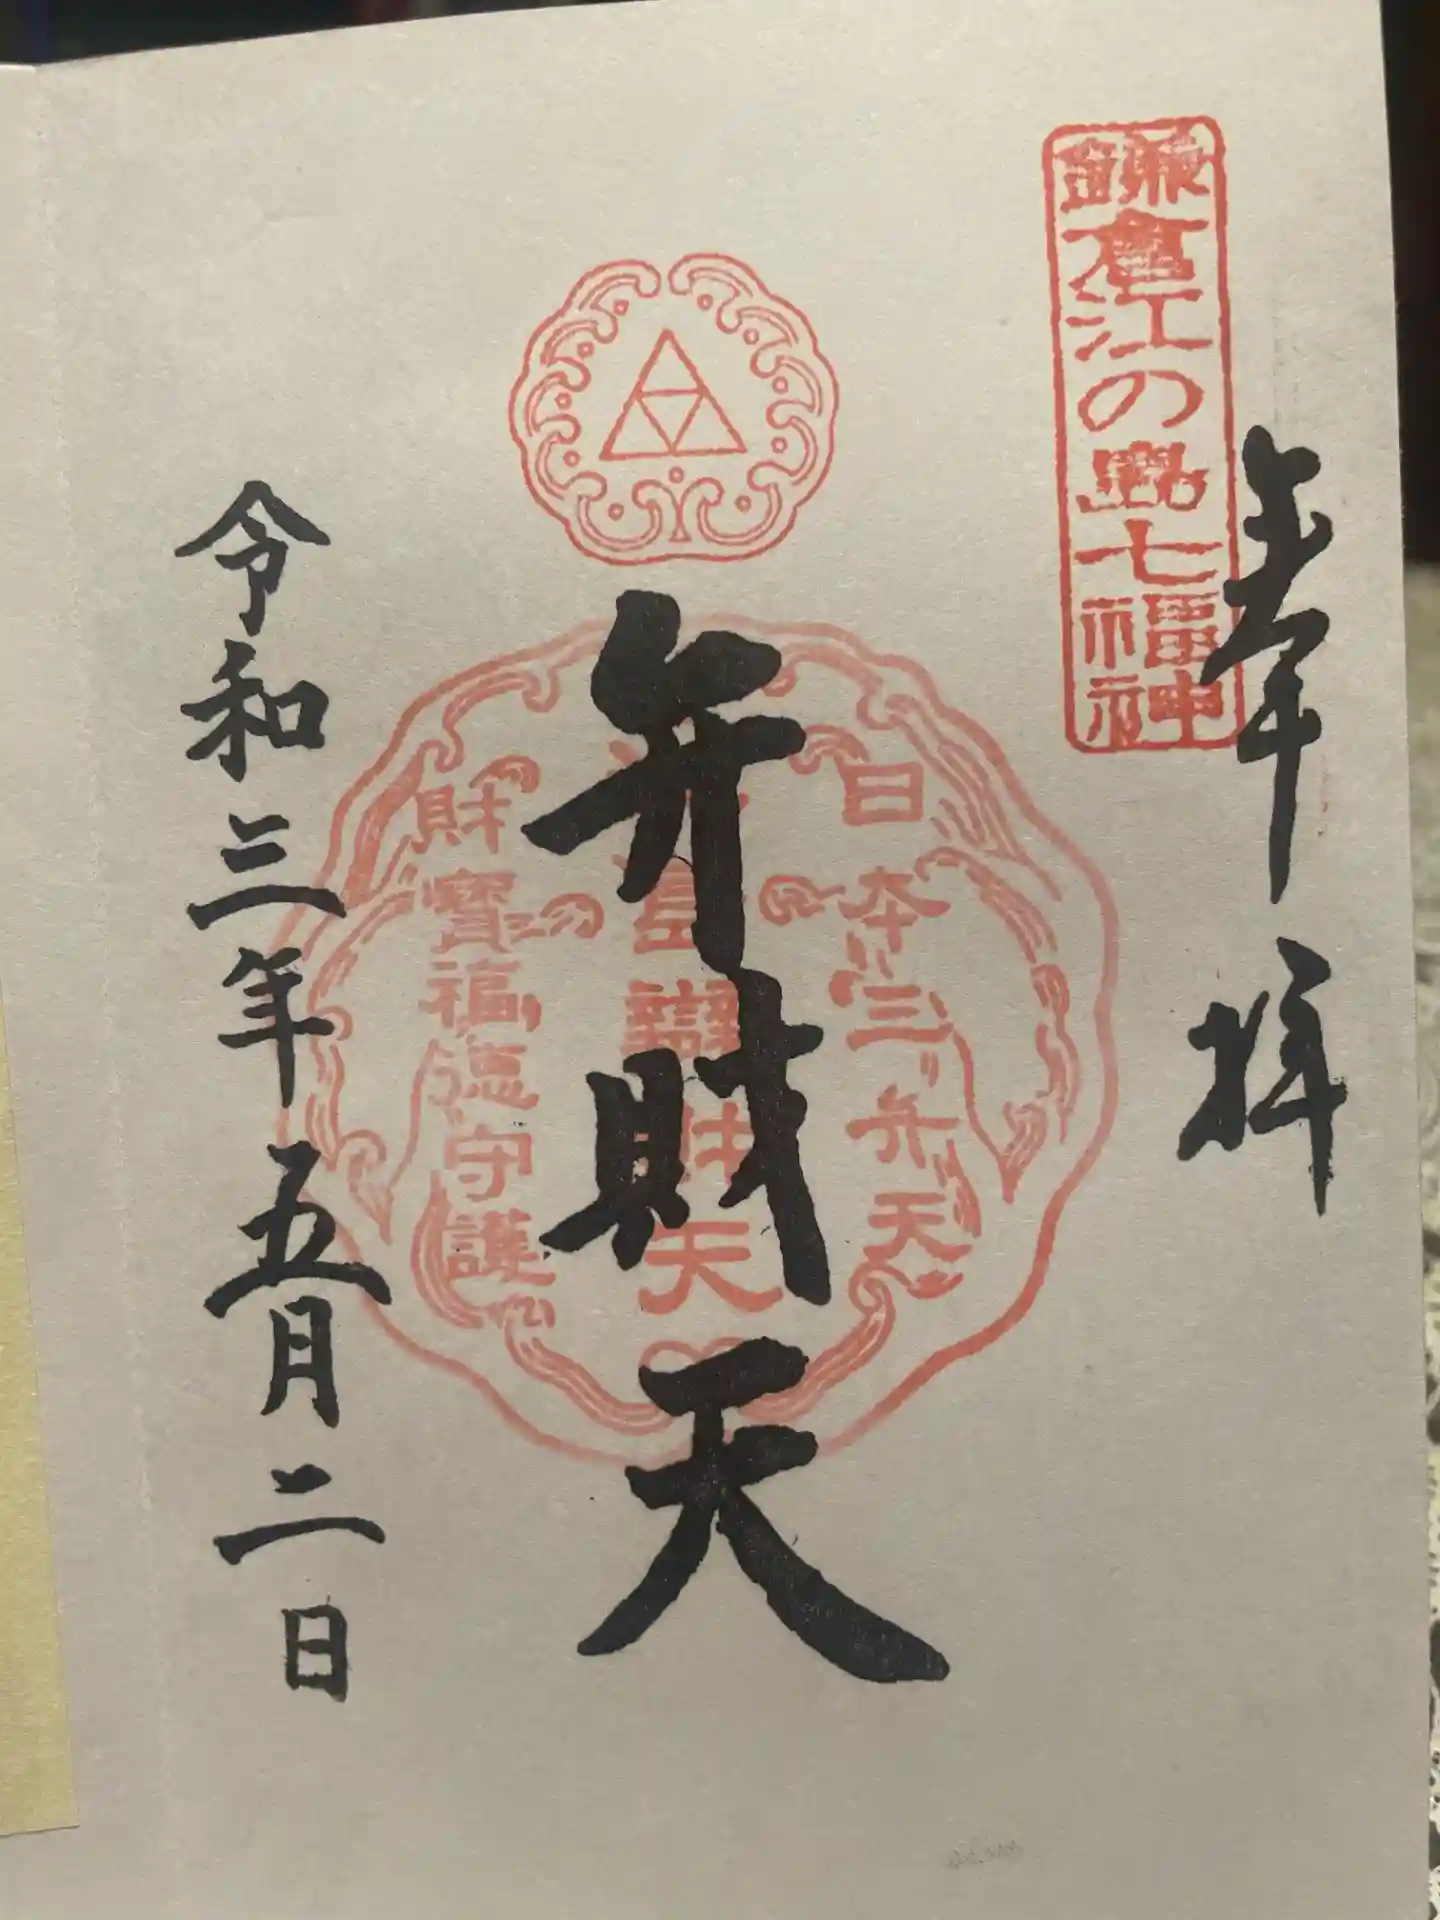 奉拝
鎌倉江の島七福神
弁財天
日本三弁天
島辨財天
財寶福徳守護
令和三年五月二日